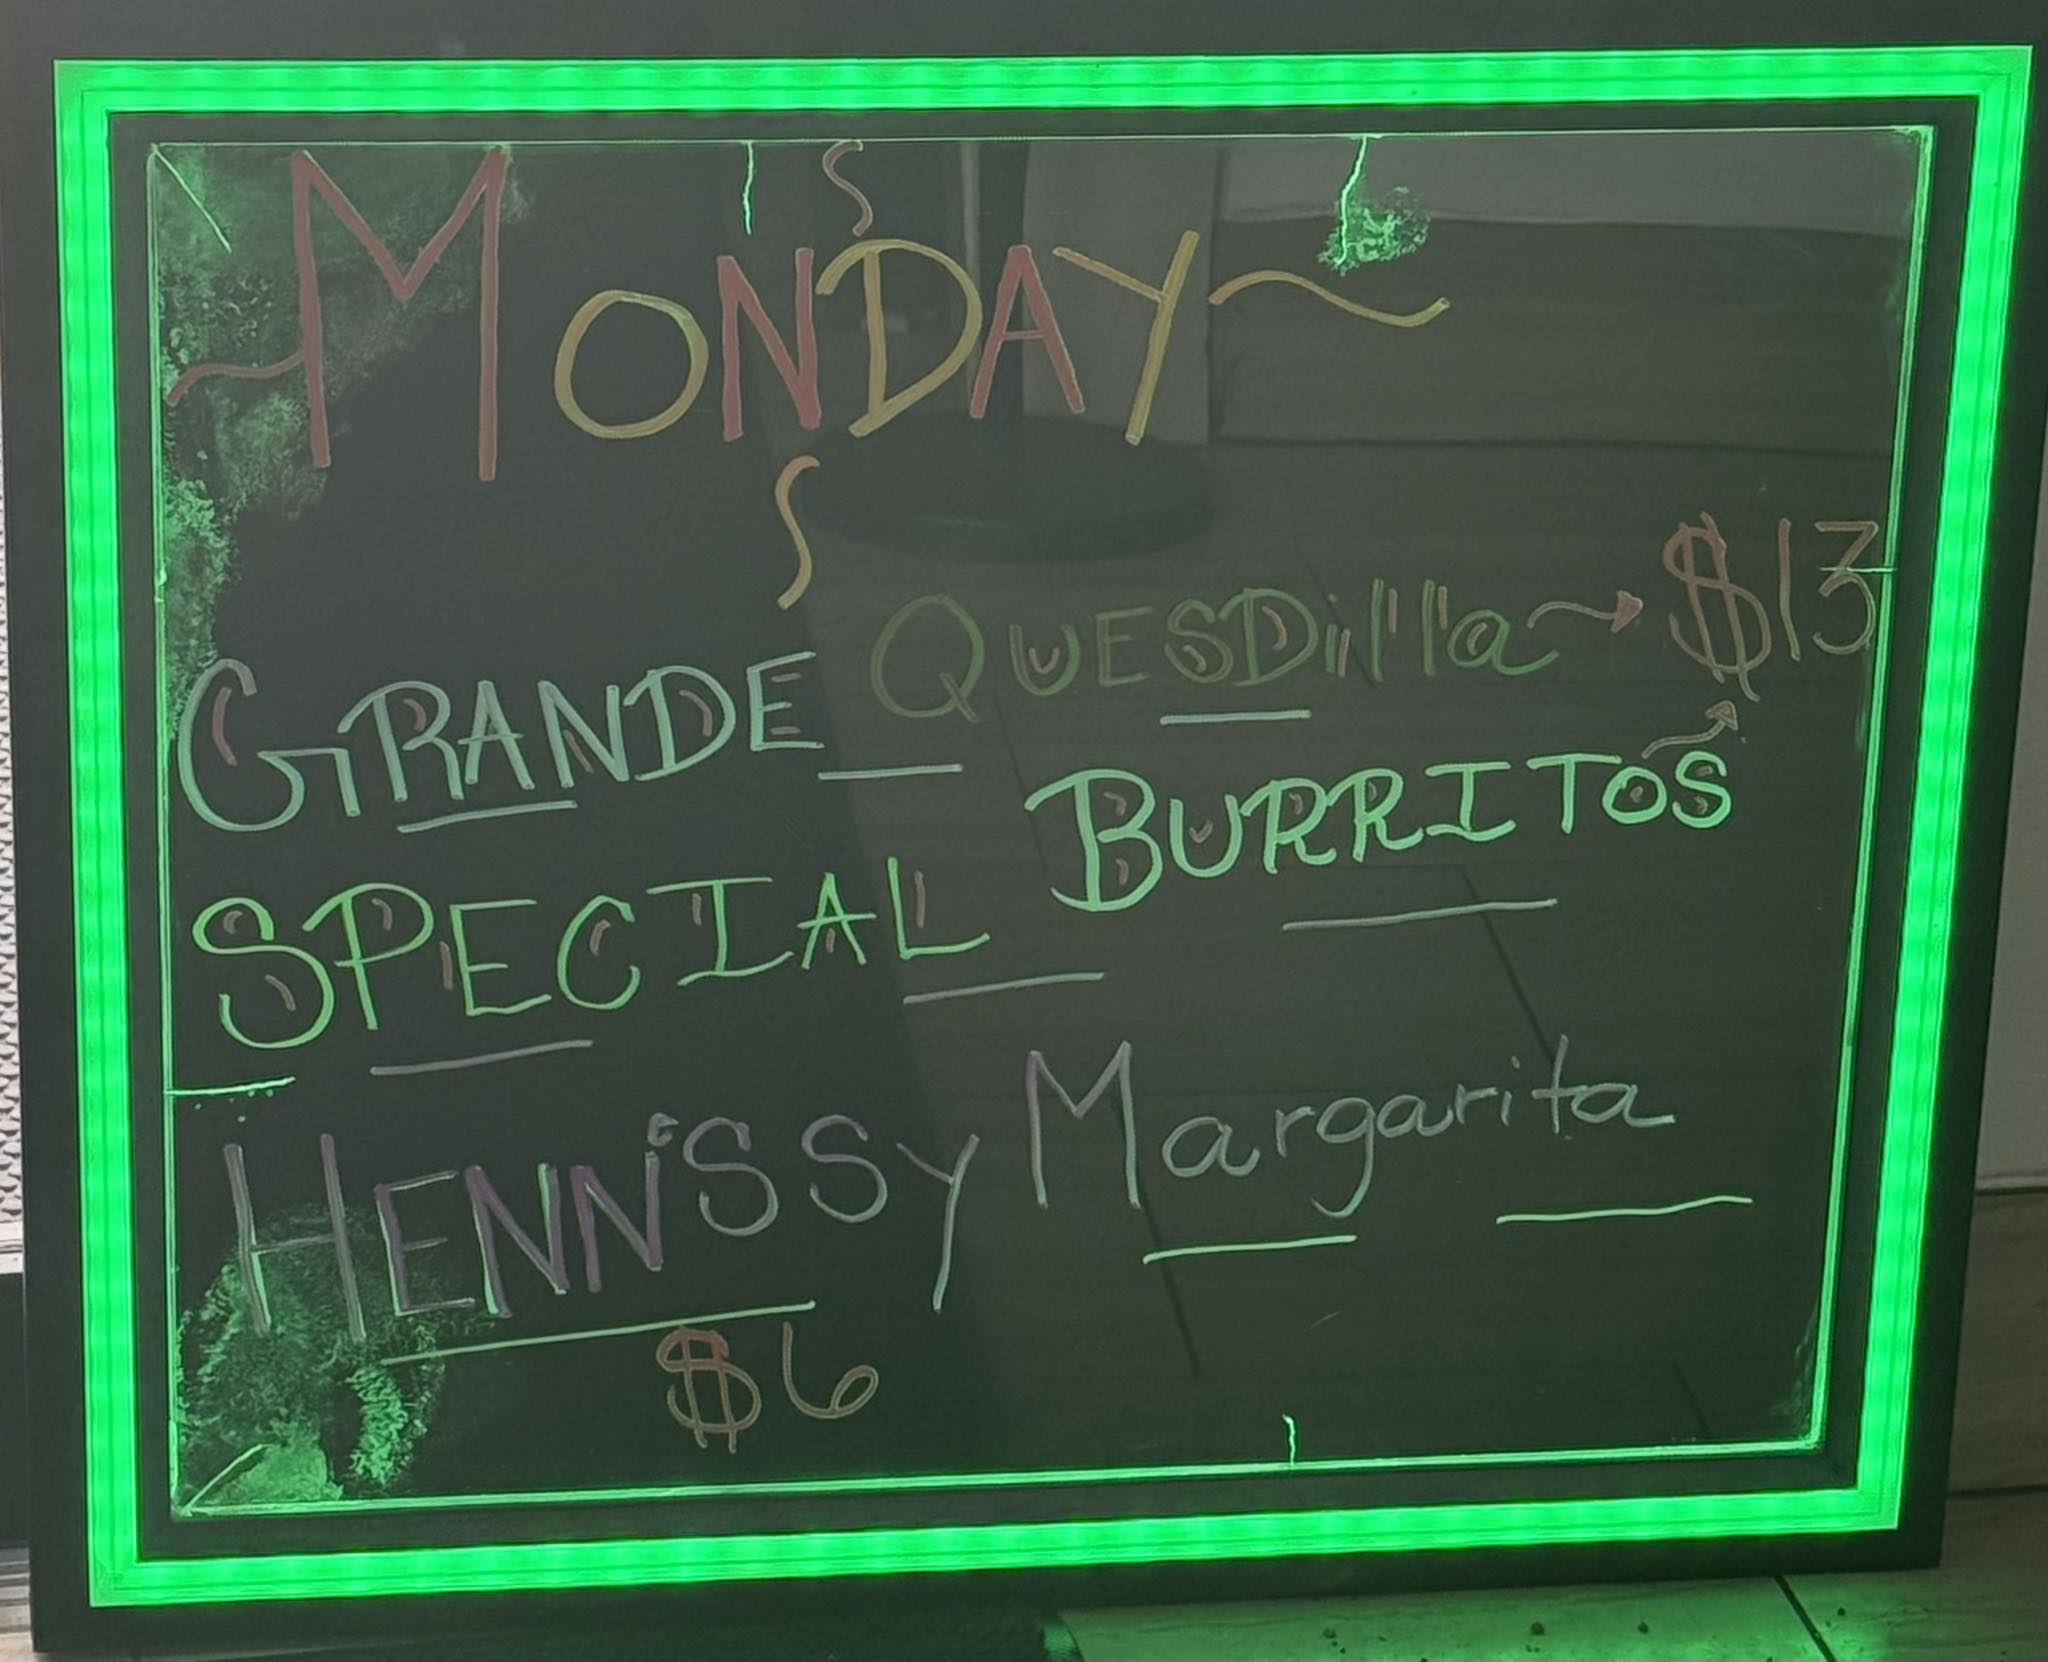 MONDAY
GRANDE QUESDilla → $13
SPECIAL BURRITOS
HENNiSSy Margarita
$6